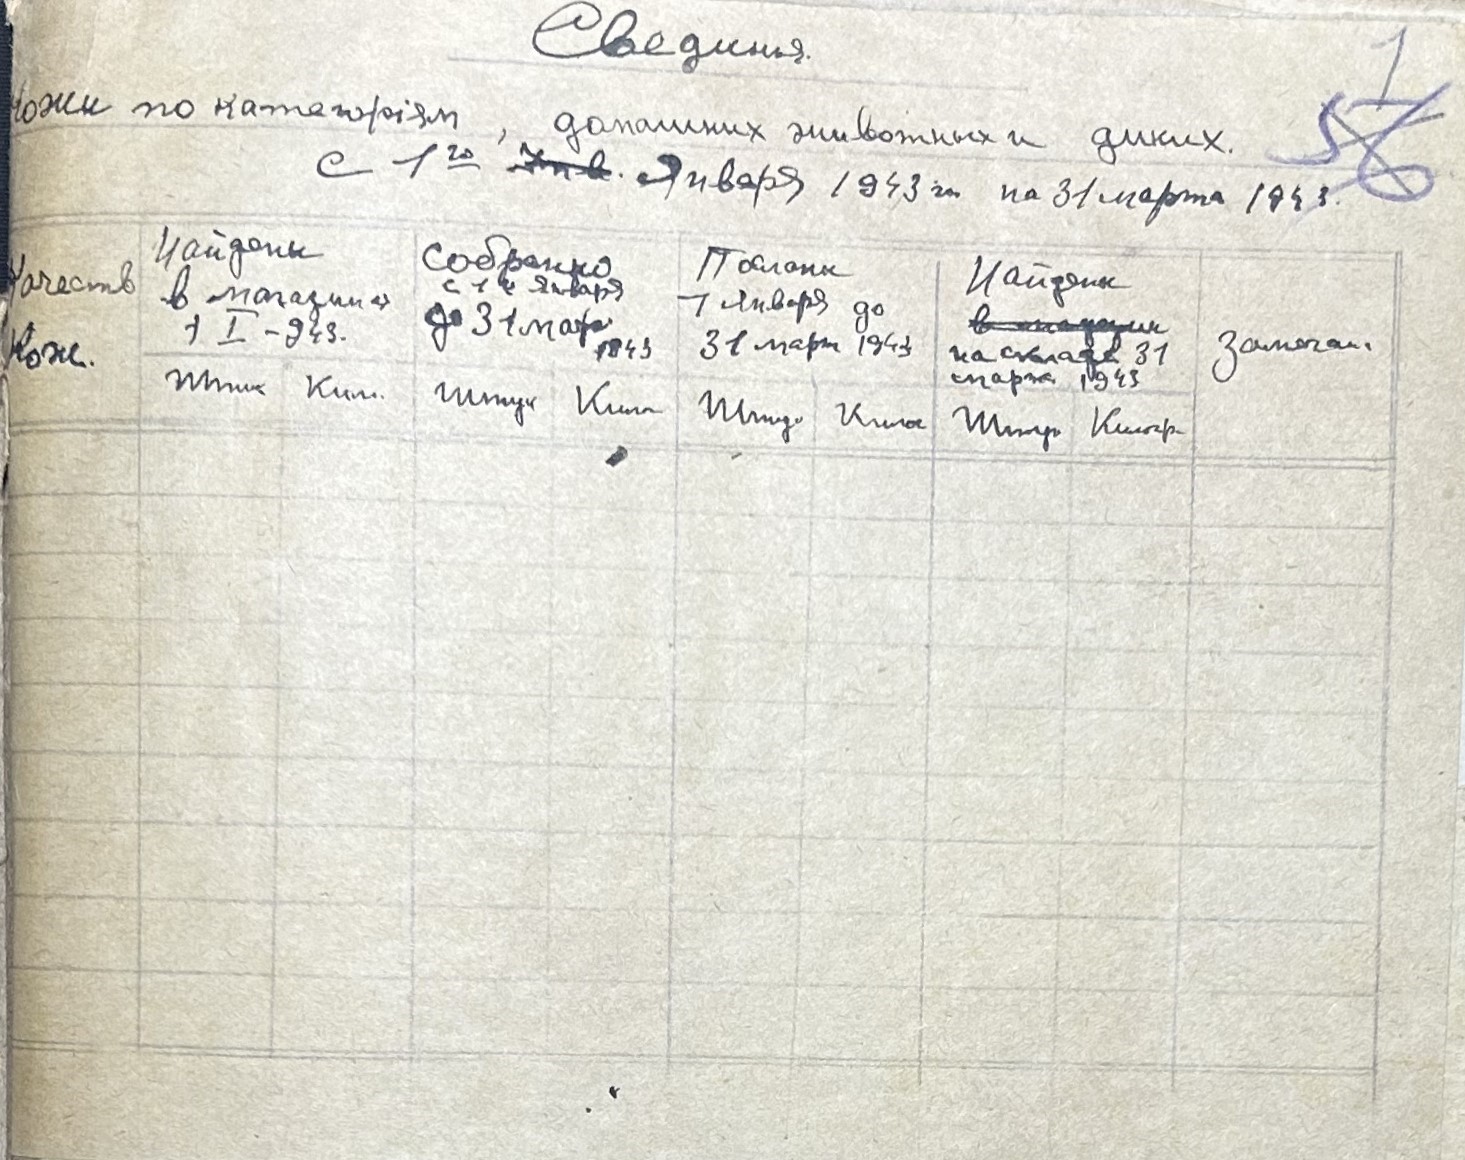 Свединья.
1
Кожи по категоріям, домашних животных и диких.
56
с 1го Янв. Января 1943 го на 31 марта 1943.
Качеств
Кож.
Найдены
в магазинах
1 I - 943.
Штук Кил.
Собранно
с 1 Января
до 31 мар.
1943
Штук Кило
Посланы
1 Января до
31 марта 1943
Штук. Кило
Найдены
в магазин
на складе 31
марта 1943
Штук Килогр.
Замечан.